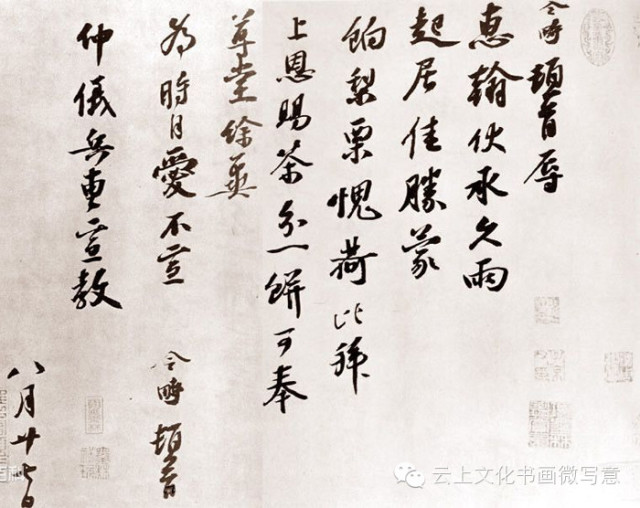 令畤頓首辱
惠翰伏承久雨
起居佳勝蒙
餉梨栗愧荷比拜
上恩賜茶分一餅可奉
尊堂餘冀
為時自愛不宣
令畤頓首
仲儀兵曹宣教
八月廿七日
云上文化书画微写意